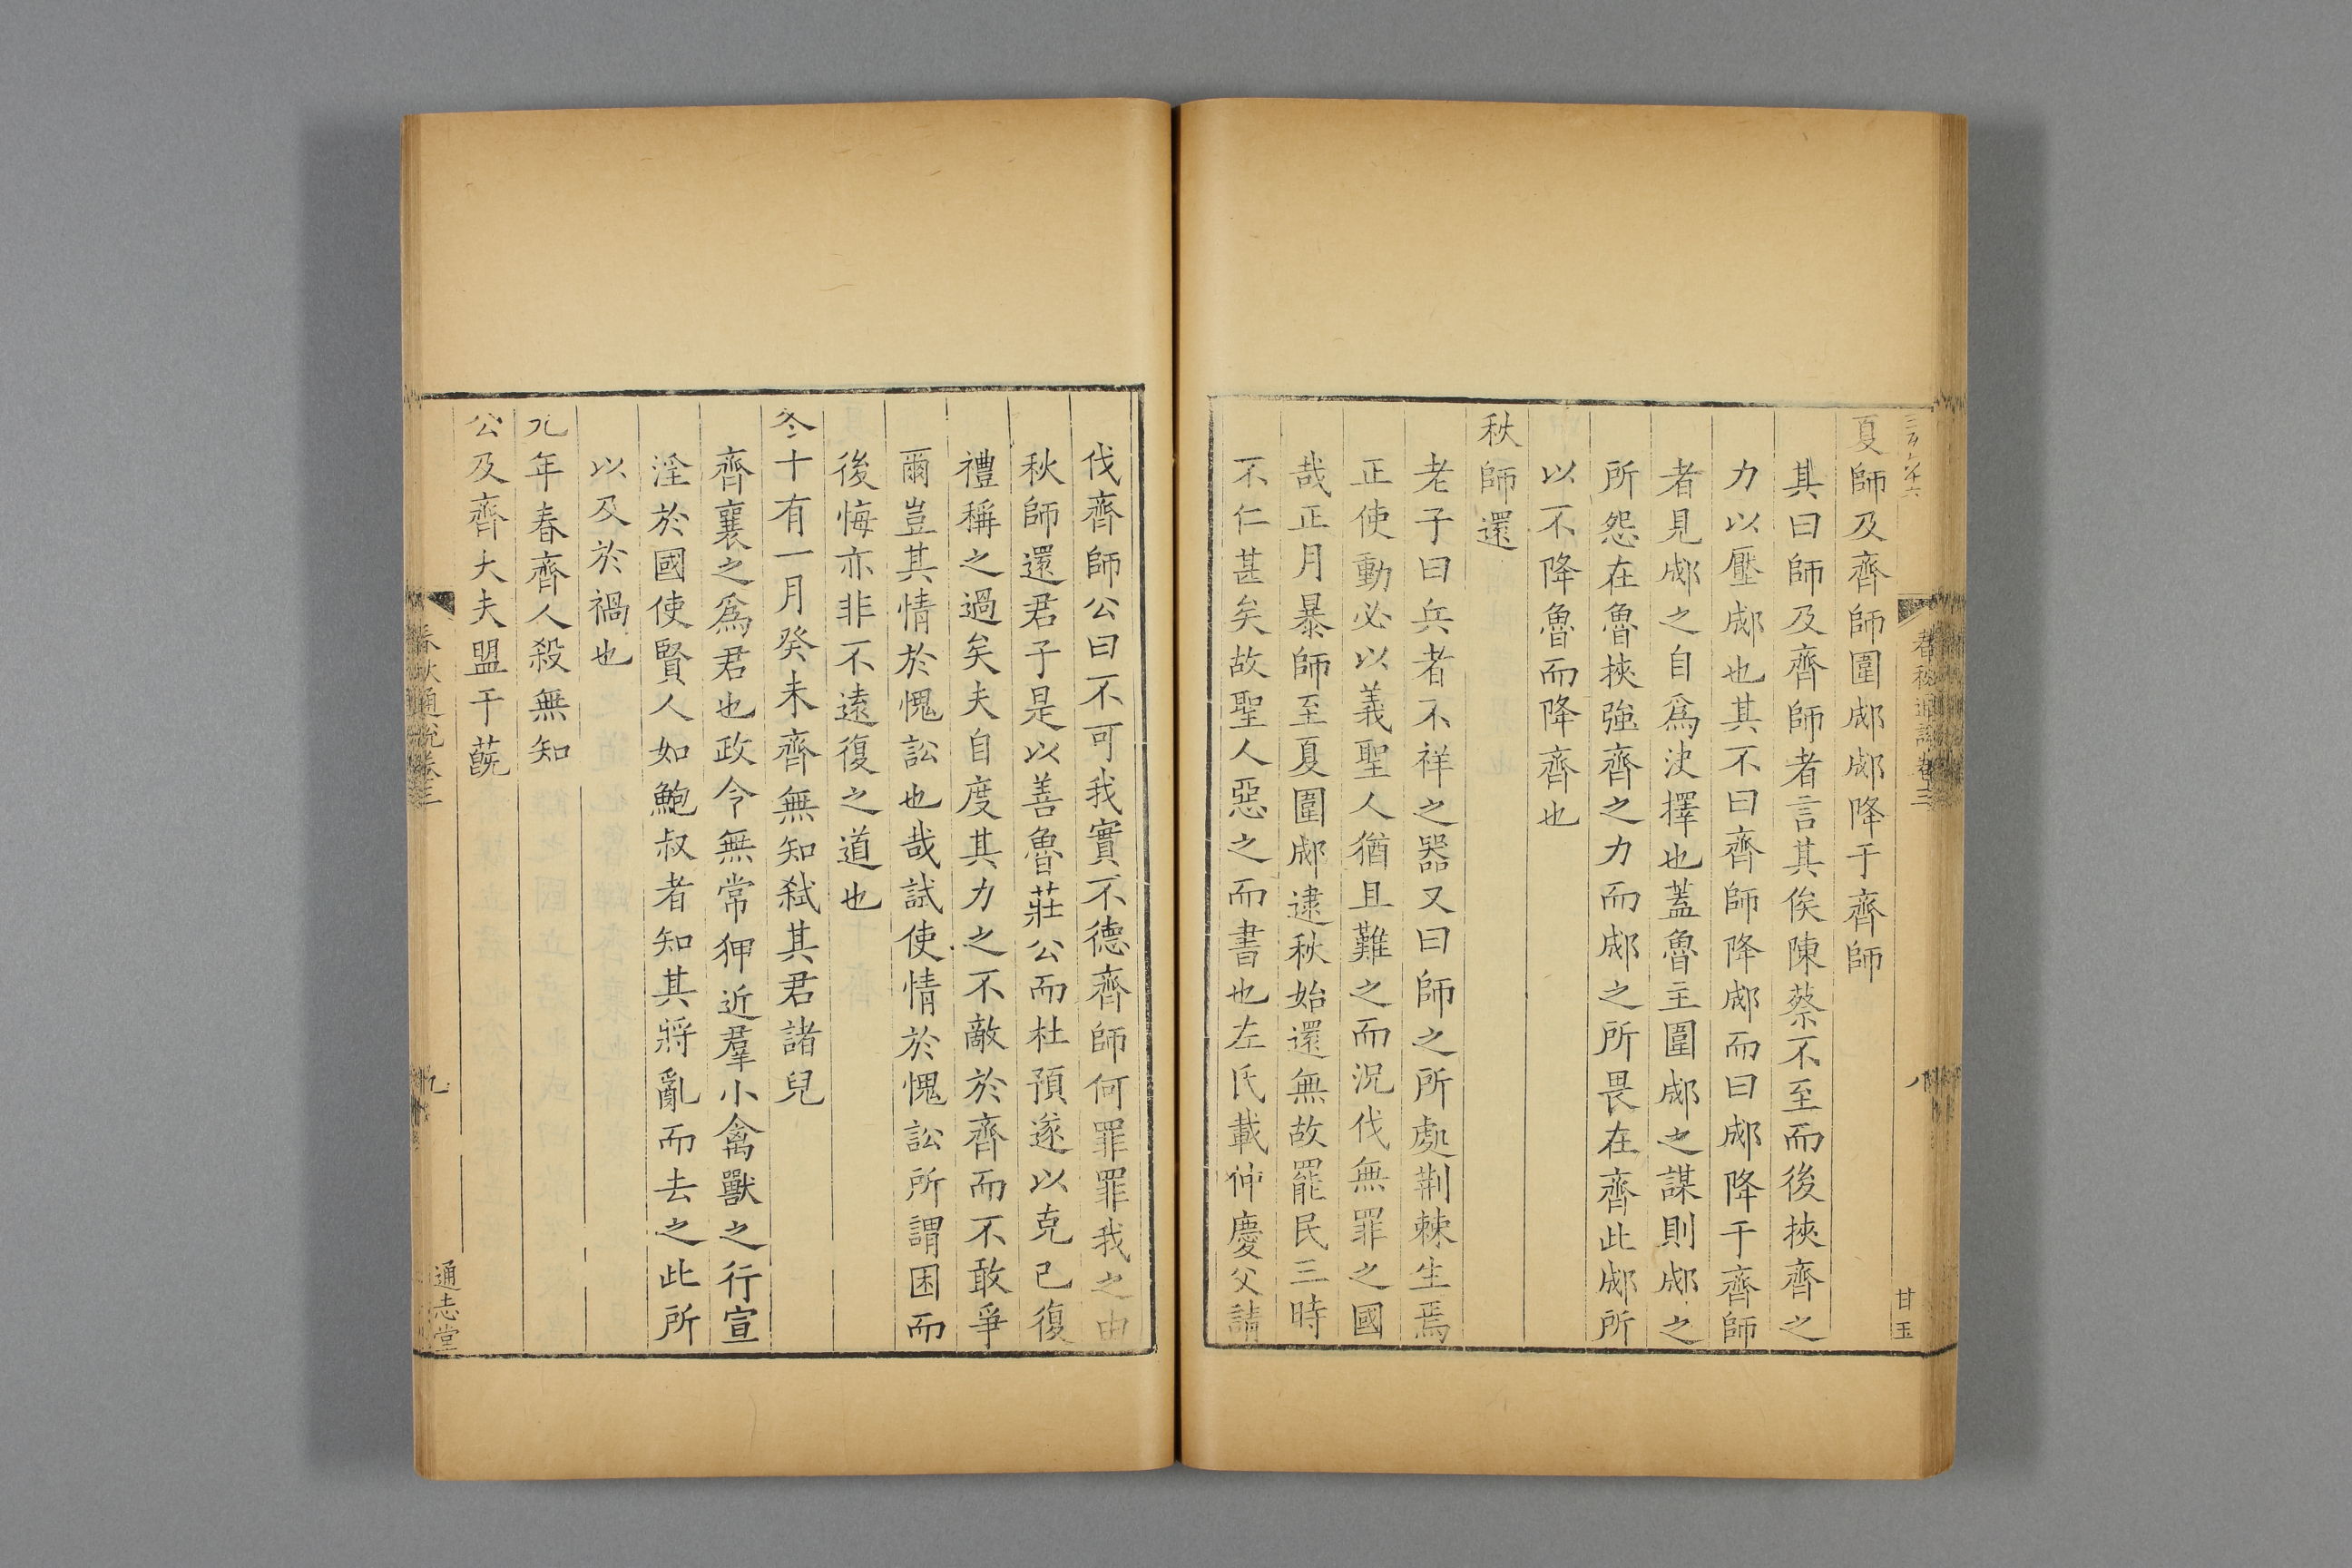 春秋通說卷三
八
甘玉
夏師及齊師圍郕郕降于齊師
其曰師及齊師者言其俟陳蔡不至而後挾齊之
力以壓郕也其不曰齊師降郕而曰郕降于齊師
者見郕之自爲決擇也蓋魯主圍郕之謀則郕之
所怨在魯挾強齊之力而郕之所畏在齊此郕所
以不降魯而降齊也
秋師還
老子曰兵者不祥之器又曰師之所處荆棘生焉
正使動必以義聖人猶且難之而況伐無罪之國
哉正月暴師至夏圍郕逮秋始還無故罷民三時
不仁甚矣故聖人惡之而書也左氏載仲慶父請
伐齊師公曰不可我實不德齊師何罪罪我之由
秋師還君子是以善魯莊公而杜預遂以克己復
禮稱之過矣夫自度其力之不敵於齊而不敢爭
爾豈其情於愧訟也哉試使情於愧訟所謂困而
後悔亦非不遠復之道也
冬十有一月癸未齊無知弑其君諸兒
齊襄之爲君也政令無常狎近羣小禽獸之行宣
淫於國使賢人如鮑叔者知其將亂而去之此所
以及於禍也
九年春齊人殺無知
公及齊大夫盟于蔇
春秋通說卷三
九
通志堂